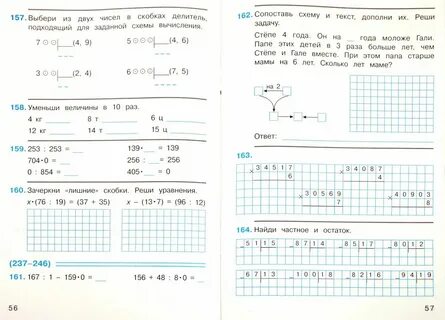 157. Выбери из двух чисел в скобках делитель,
подходящий для заданной схемы вычисления.
7 (4, 9)
5 (4, 6)
3 (2, 4)
6 (7, 5)
158. Уменьши величины в 10 раз.
4 кг 8 т 6 ц
12 кг 14 т 15 ц
159. 253 : 253 = 139 = 139
704·0 = 256 : = 256
0 : 854 = 405· = 0
160. Зачеркни «лишние» скобки. Реши уравнения.
x·(76 : 19) = (37 + 35) x − (13·7) = (96 : 12)
(237–246)
161. 167 : 1 − 159·0 = 156 + 48 : 8·0 =
56
162. Сопоставь схему и текст, дополни их. Реши
задачу.
Стёпе 4 года. Он на года моложе Гали.
Папе этих детей в 3 раза больше лет, чем
Стёпе и Гале вместе. При этом папа старше
мамы на 6 лет. Сколько лет маме?
на 2
Ответ:
163.
× 34517 × 34087
6 4
× 30569 × 40903
7 8
164. Найди частное и остаток:
5115 8714 8715 8012
6713 10018 8216 9419
57